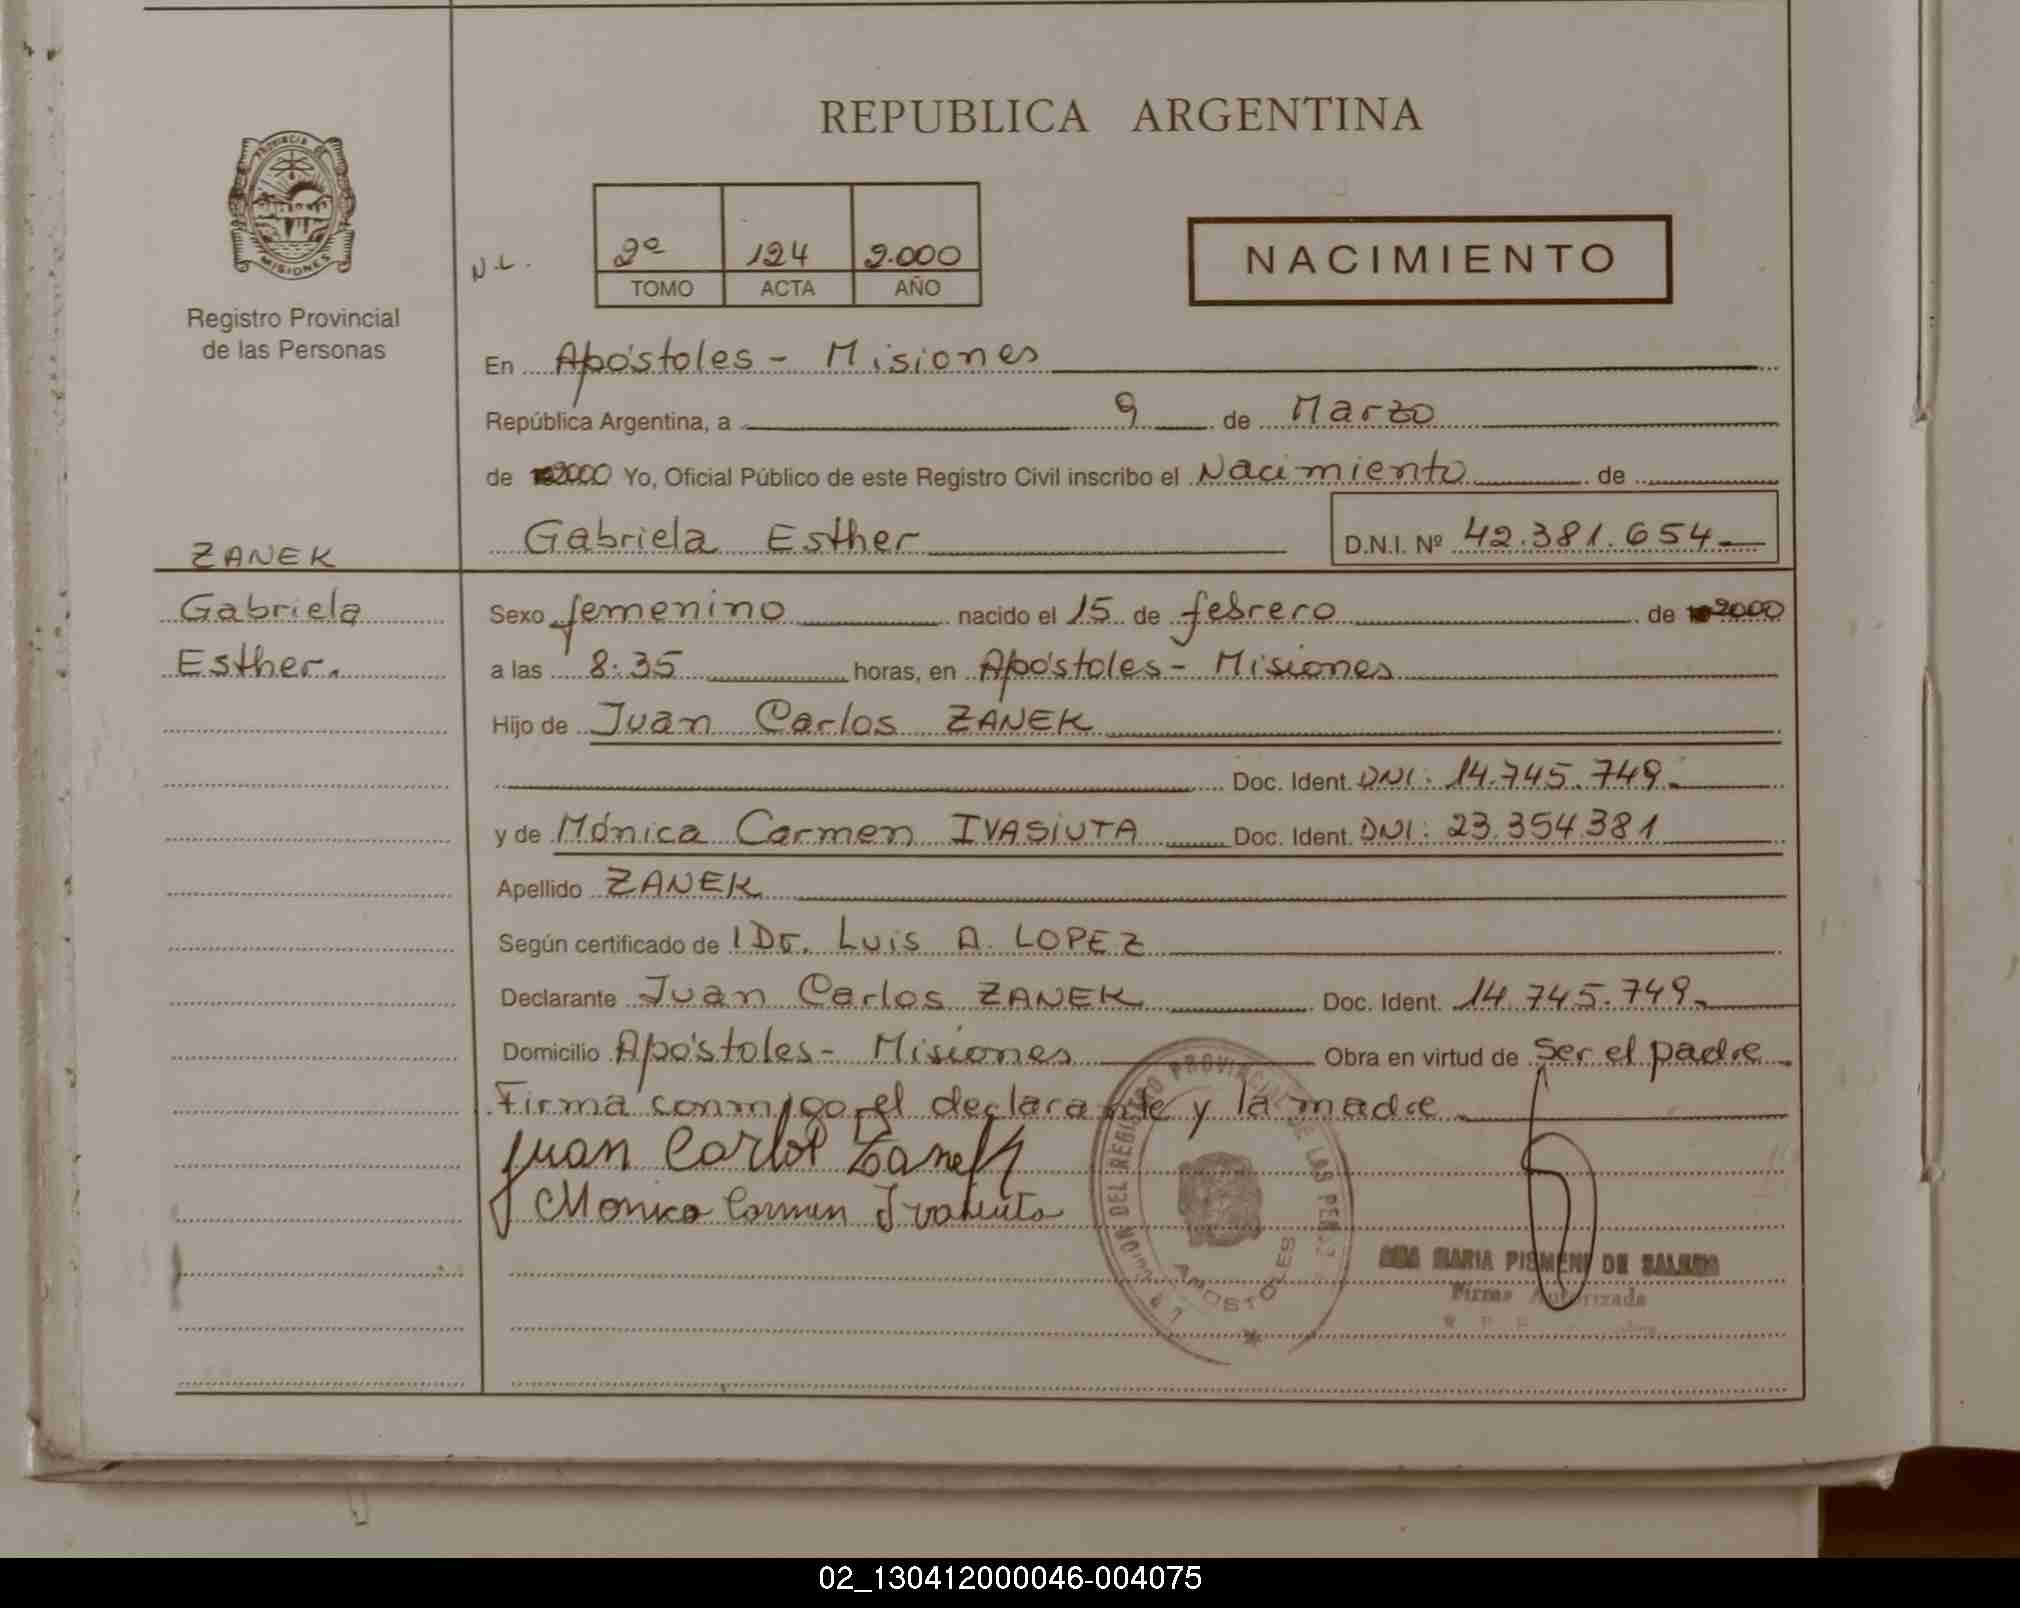 REPUBLICA ARGENTINA
PROVINCIA DE
MISIONES
Registro Provincial
de las Personas
N.L.
2º 124 2.000
TOMO ACTA AÑO
NACIMIENTO
En Apóstoles - Misiones
República Argentina, a 9 de Marzo
de 2000 Yo, Oficial Público de este Registro Civil inscribo el Nacimiento de
Gabriela Esther D.N.I. Nº 42.381.654
ZANEK
Gabriela
Esther.
Sexo femenino nacido el 15 de febrero de 2000
a las 8:35 horas, en Apóstoles - Misiones
Hijo de Juan Carlos ZANEK
Doc. Ident. DNI: 14.745.749.
y de Mónica Carmen IVASIUTA Doc. Ident. DNI: 23.354.381
Apellido ZANEK
Según certificado de Dr. Luis A. LOPEZ
Declarante Juan Carlos ZANEK Doc. Ident. 14.745.749.
Domicilio Apóstoles - Misiones Obra en virtud de ser el padre
Firma conmigo el declarante y la madre
Juan Carlos Zanek
Monica Carmen Ivasiuta
DEL REGISTRO PROVINCIAL DE LAS
APOSTOLES
MARIA DE
Firma Autorizada
02_130412000046-004075